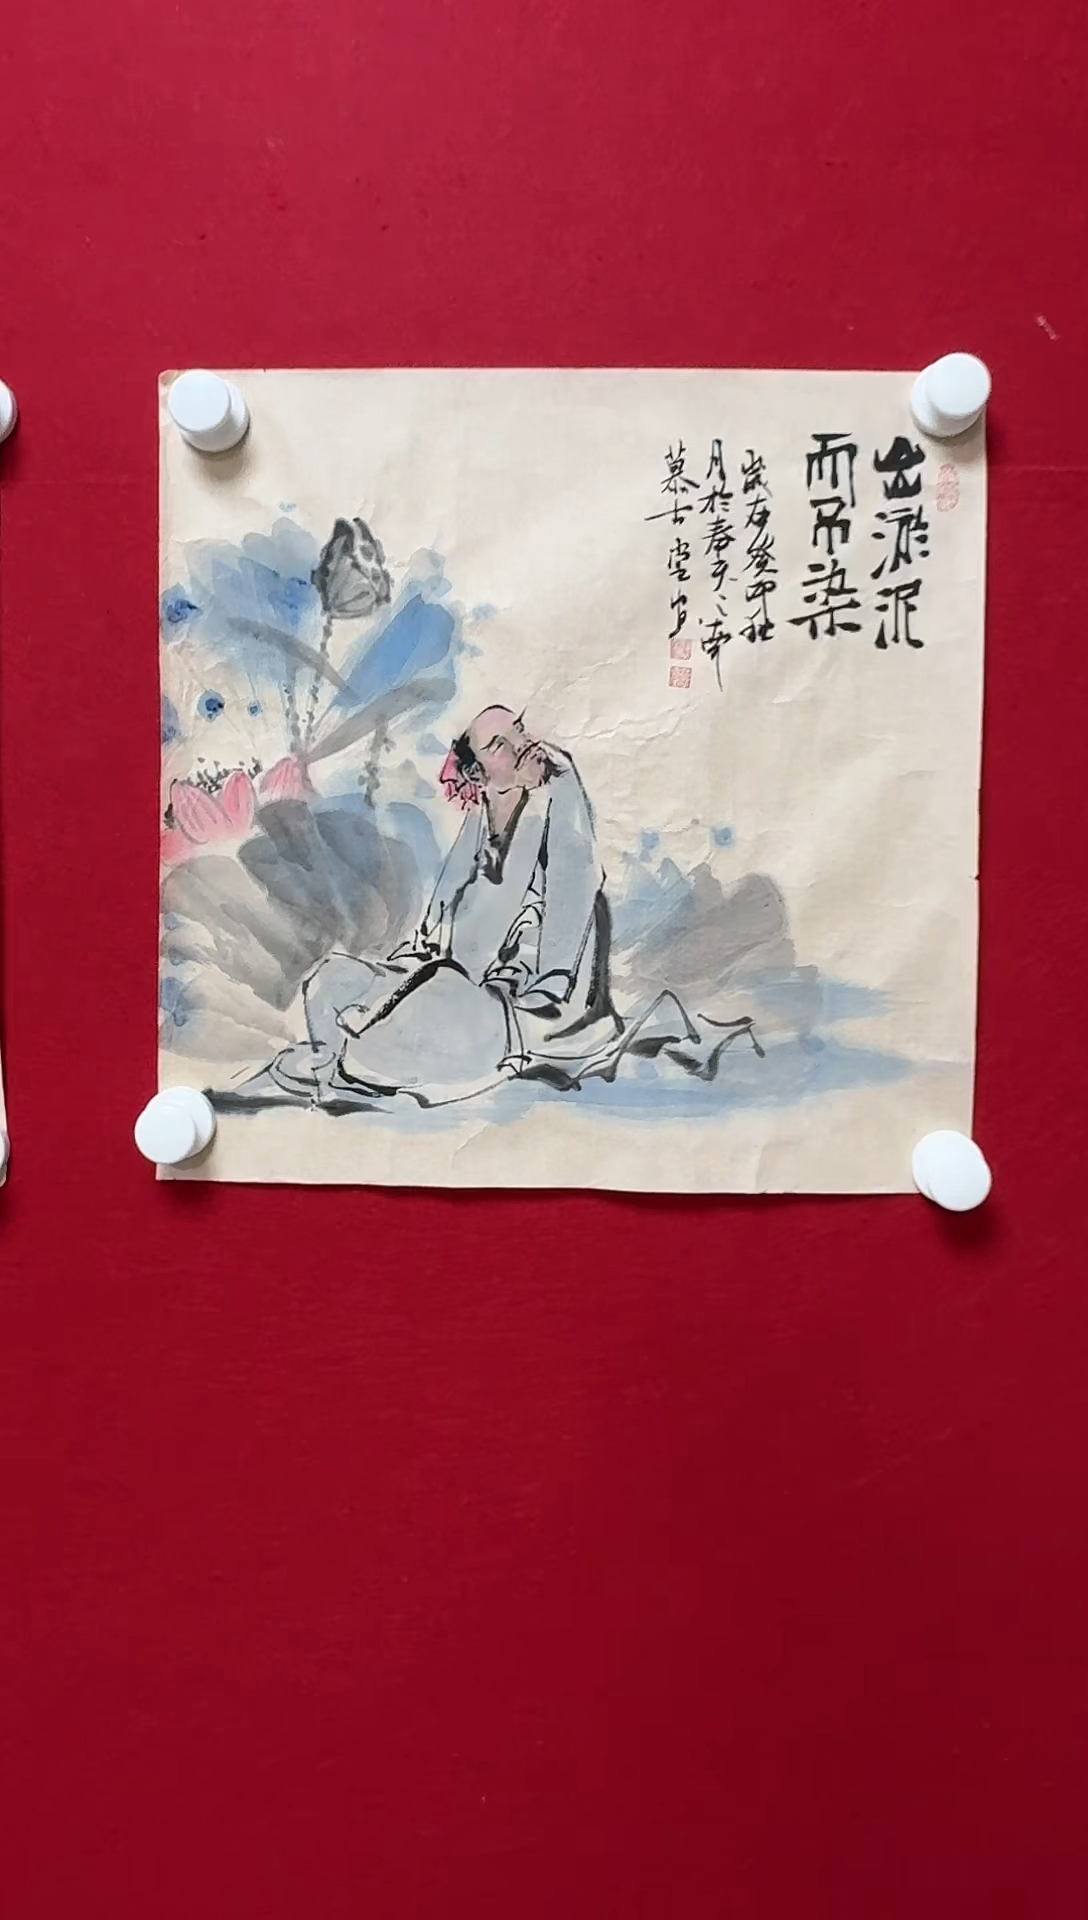 出淤泥
而不染
岁在癸卯秋
月於奉天之南
慕古堂宙